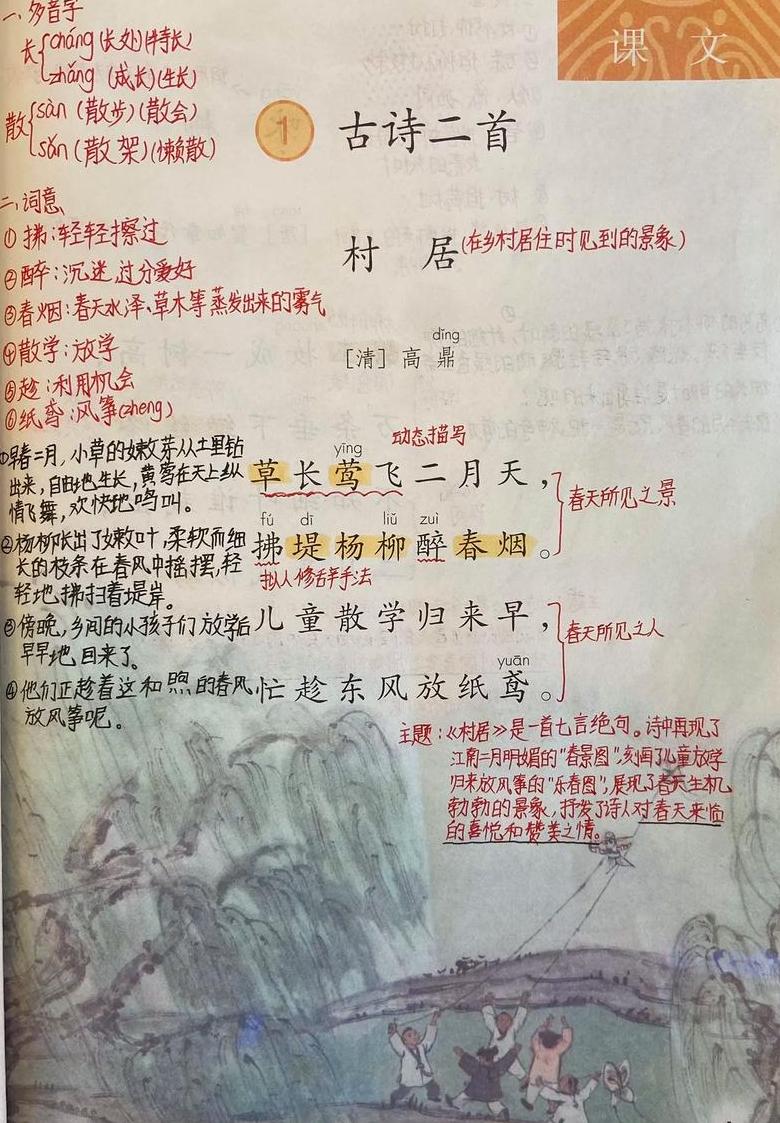 一、多音字
长 cháng (长处)(特长)
zhǎng (成长)(生长)
散 sàn (散步)(散会)
sǎn (散架)(懒散)
课文
1 古诗二首
二、词意
①拂:轻轻擦过
②醉:沉迷,过分爱好
③春烟:春天水泽、草木等蒸发出来的雾气
④散学:放学
⑤趁:利用机会
⑥纸鸢:风筝(zheng)
村居(在乡村居住时见到的景象)
dǐng
[清] 高鼎
动态描写
yīng
草长莺飞二月天,
fú dī liǔ zuì
拂堤杨柳醉春烟。
拟人修辞手法
春天所见之景
儿童散学归来早,
yuān
忙趁东风放纸鸢。
春天所见之人
①早春二月,小草的嫩芽从土里钻
出来,自由地生长,黄莺在天上纵
情飞舞,欢快地鸣叫。
②杨柳长出了嫩叶,柔软而细
长的枝条在春风中摇摆,轻
轻地拂扫着堤岸。
③傍晚,乡间的小孩子们放学后
早早地回来了。
④他们正趁着这和煦的春风
放风筝呢。
主题:《村居》是一首七言绝句。诗中再现了
江南二月明媚的“春景图”,刻画了儿童放学
归来放风筝的“乐春图”,展现了春天生机
勃勃的景象,抒发了诗人对春天来临
的喜悦和赞美之情。